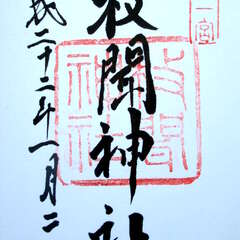 一宮
枚聞
神社
枚聞神社
成二十二年一月二